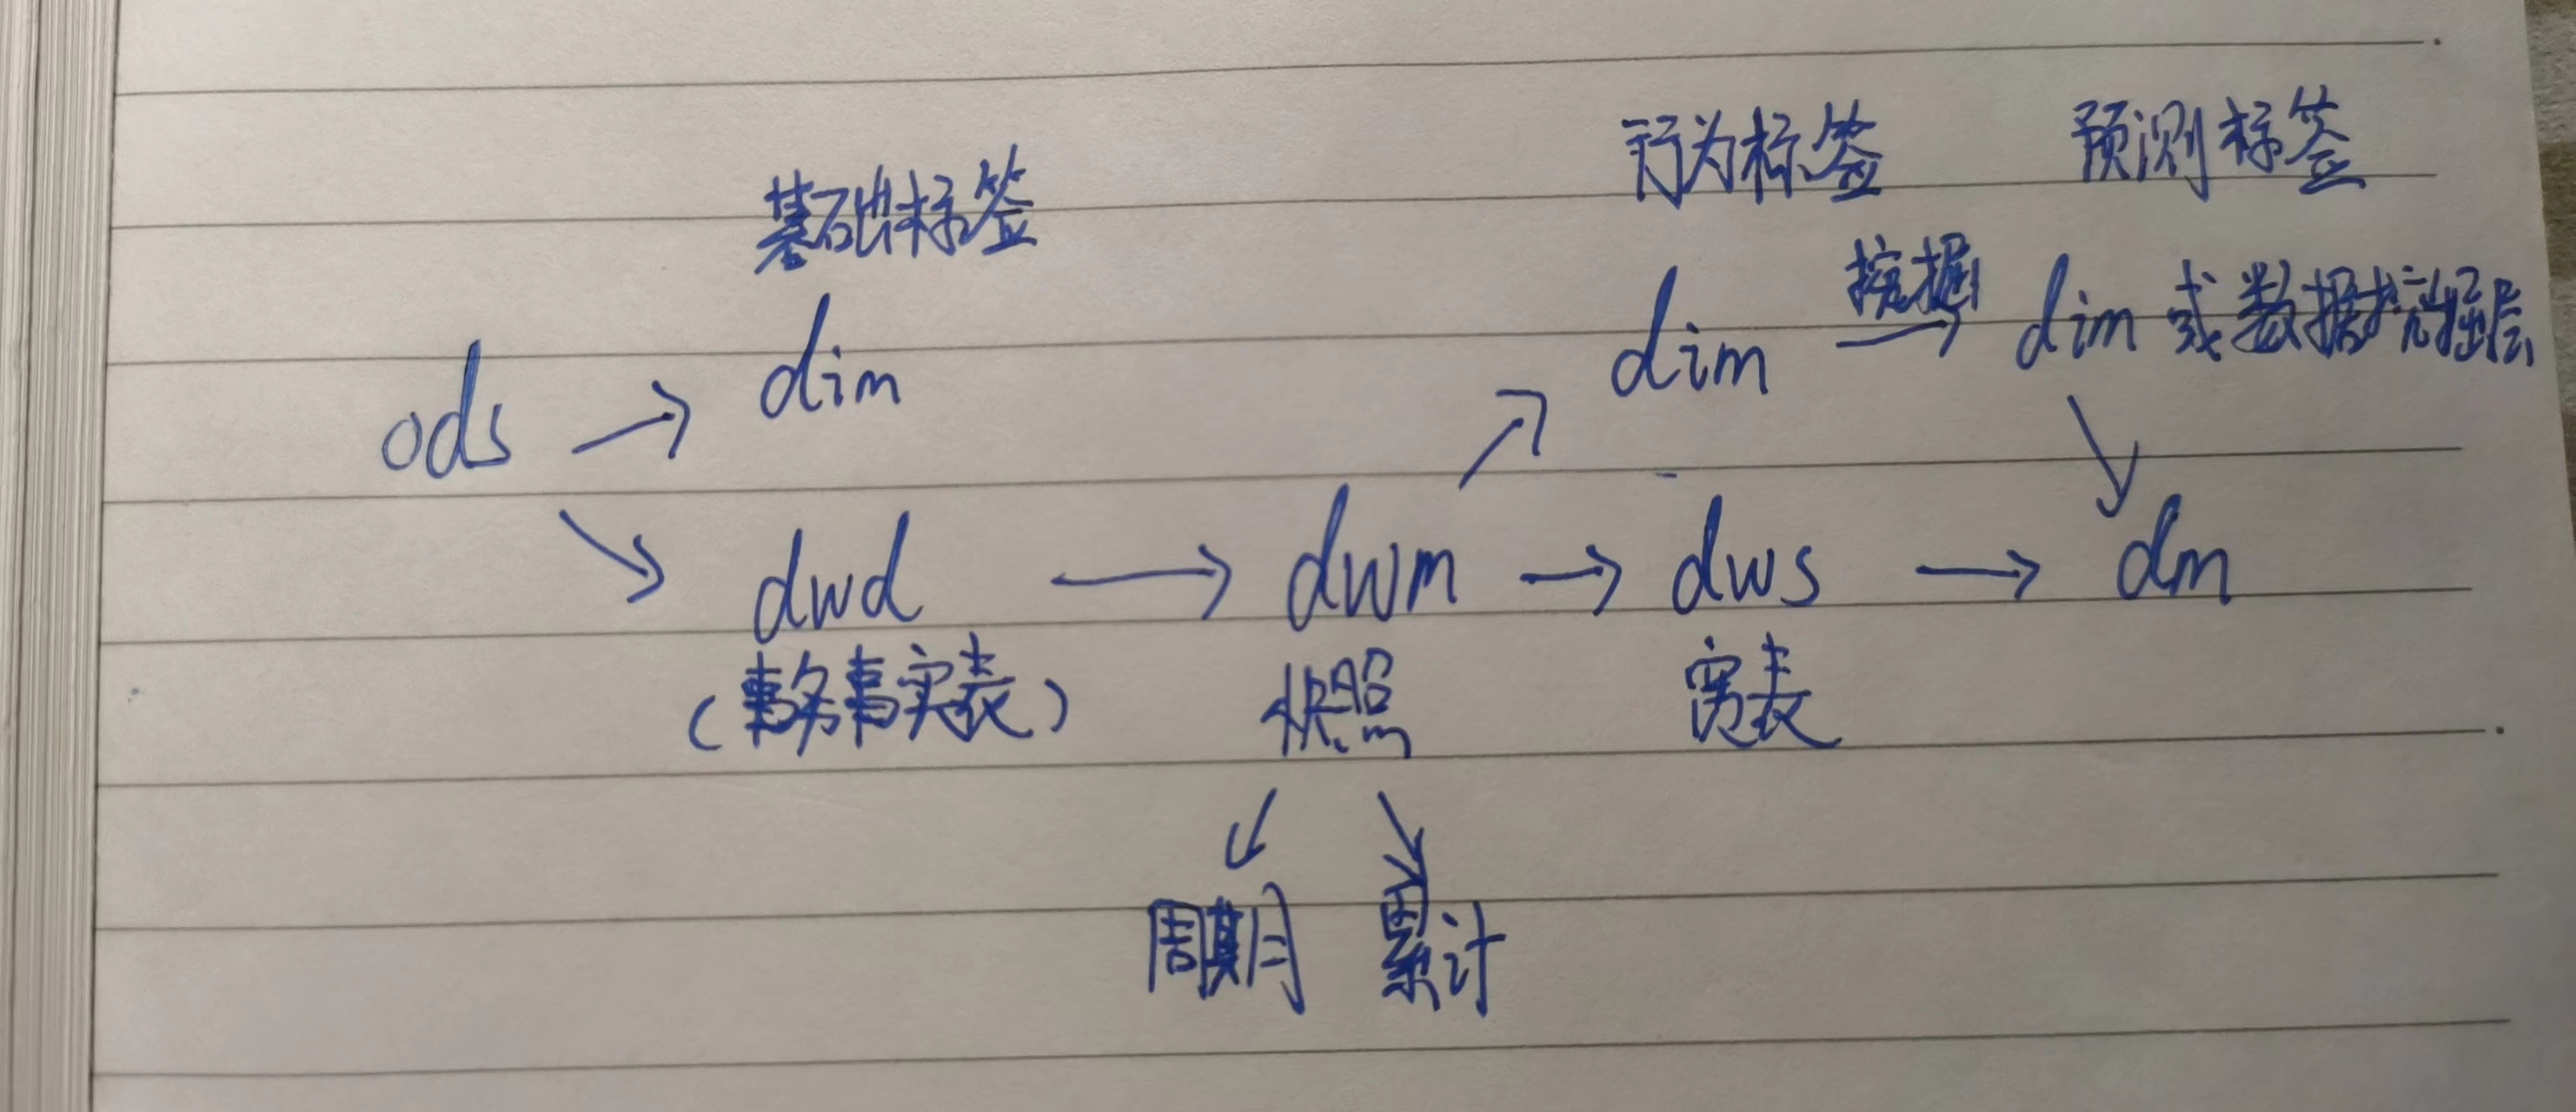 行为标签 预测标签
基础标签
挖掘
dim dim → dim 或数据挖掘层
ods →
dwd → dwm → dws → dm
(事务事实表) 快照 宽表
周期 累计